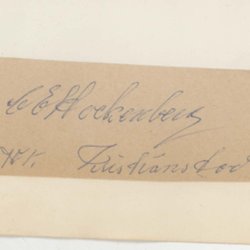 C E Hockenberg
Kristianstad